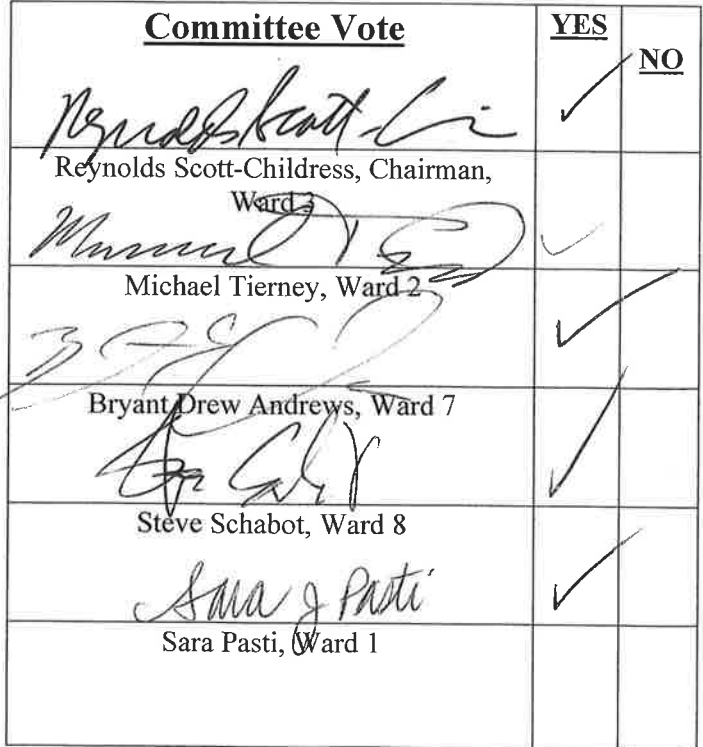 Committee Vote
YES
NO
Reynolds Scott-Chi
Reynolds Scott-Childress, Chairman,
Ward 3
Michael Tierney, Ward 2
Bryant Drew Andrews, Ward 7
Steve Schabot, Ward 8
Sara J Pasti
Sara Pasti, Ward 1